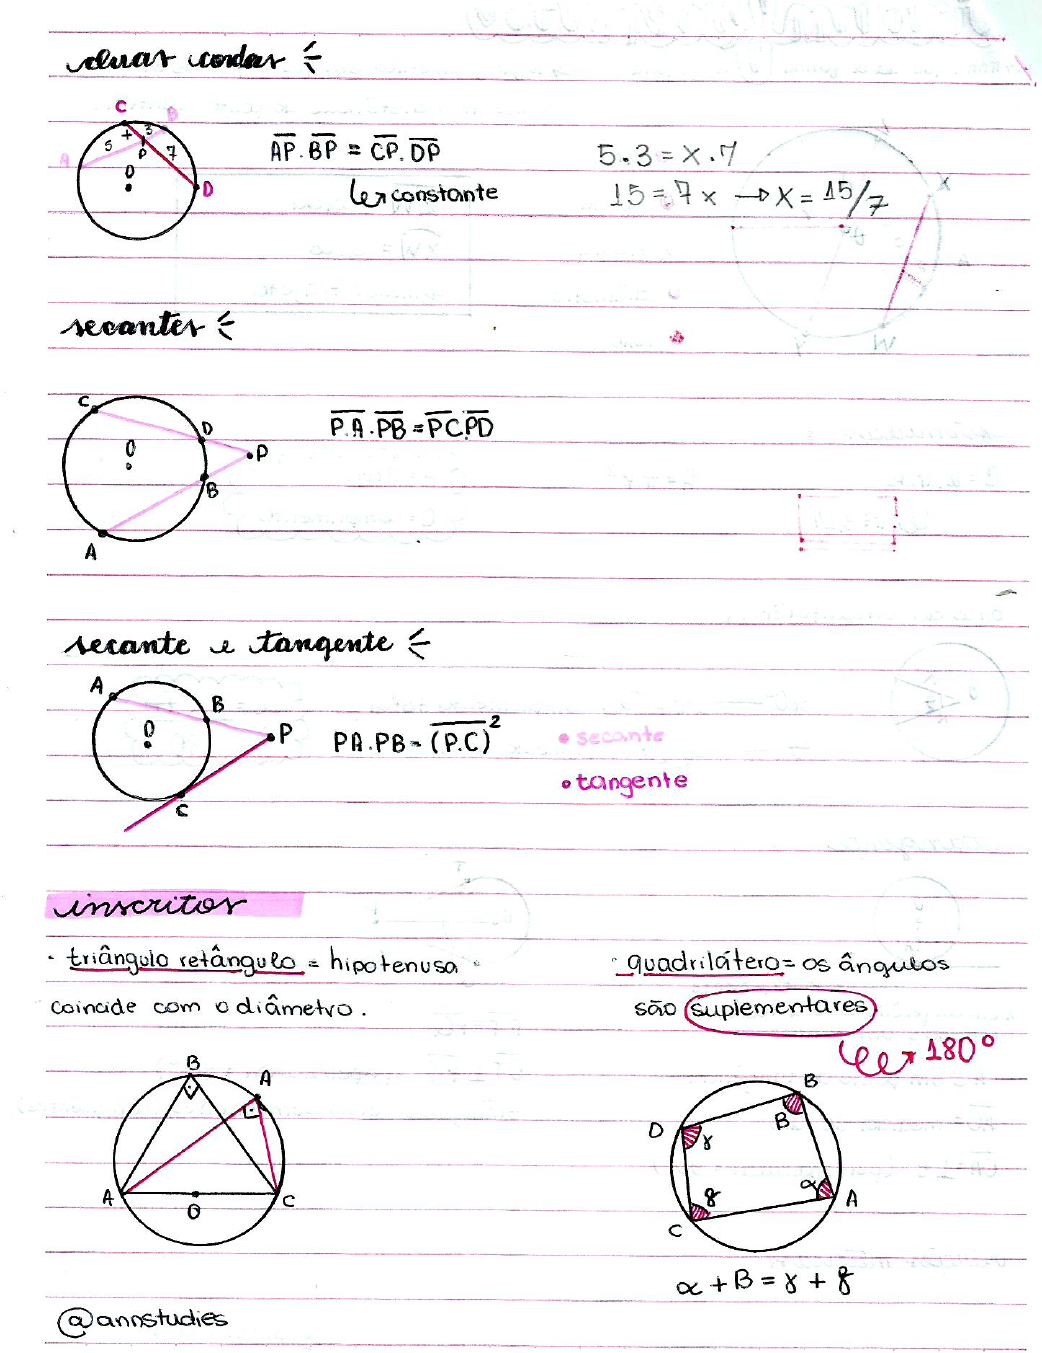 duas cordas
C
B
A
5
x
3
P
7
O
D
AP.BP = CP.DP
constante
5.3 = x.7
15 = 7x → x = 15/7
secantes
C
D
O
P
B
A
PA.PB = PC.PD
secante e tangente
A
B
O
P
C
PA.PB = (P.C)²
• secante
• tangente
inscritos
· triângulo retângulo = hipotenusa
coincide com o diâmetro.
· quadrilátero = os ângulos
são suplementares
180°
B
A
A
O
C
B
D
B
γ
α
A
δ
C
α + B = γ + δ
@annstudies